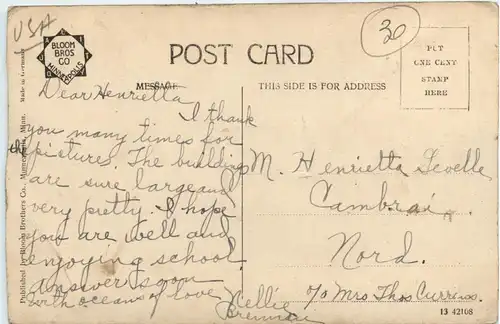 USA
30
BLOOM
BROS
CO
MINNEAPOLIS
POST CARD
PUT
ONE CENT
STAMP
HERE
MESSAGE
THIS SIDE IS FOR ADDRESS
Made in Germany
Published by Bloom Brothers Co., Minneapolis, Minn.
Dear Henrietta
I thank
you many times for
the pictures. The buildings
are sure large and
very pretty. I hope
you are well and
enjoying school
answer soon
with oceans of love
Nellie
Brennan
M. Henrietta
Cambrai
Nord.
c/o Mrs Thos Currens
13 42108